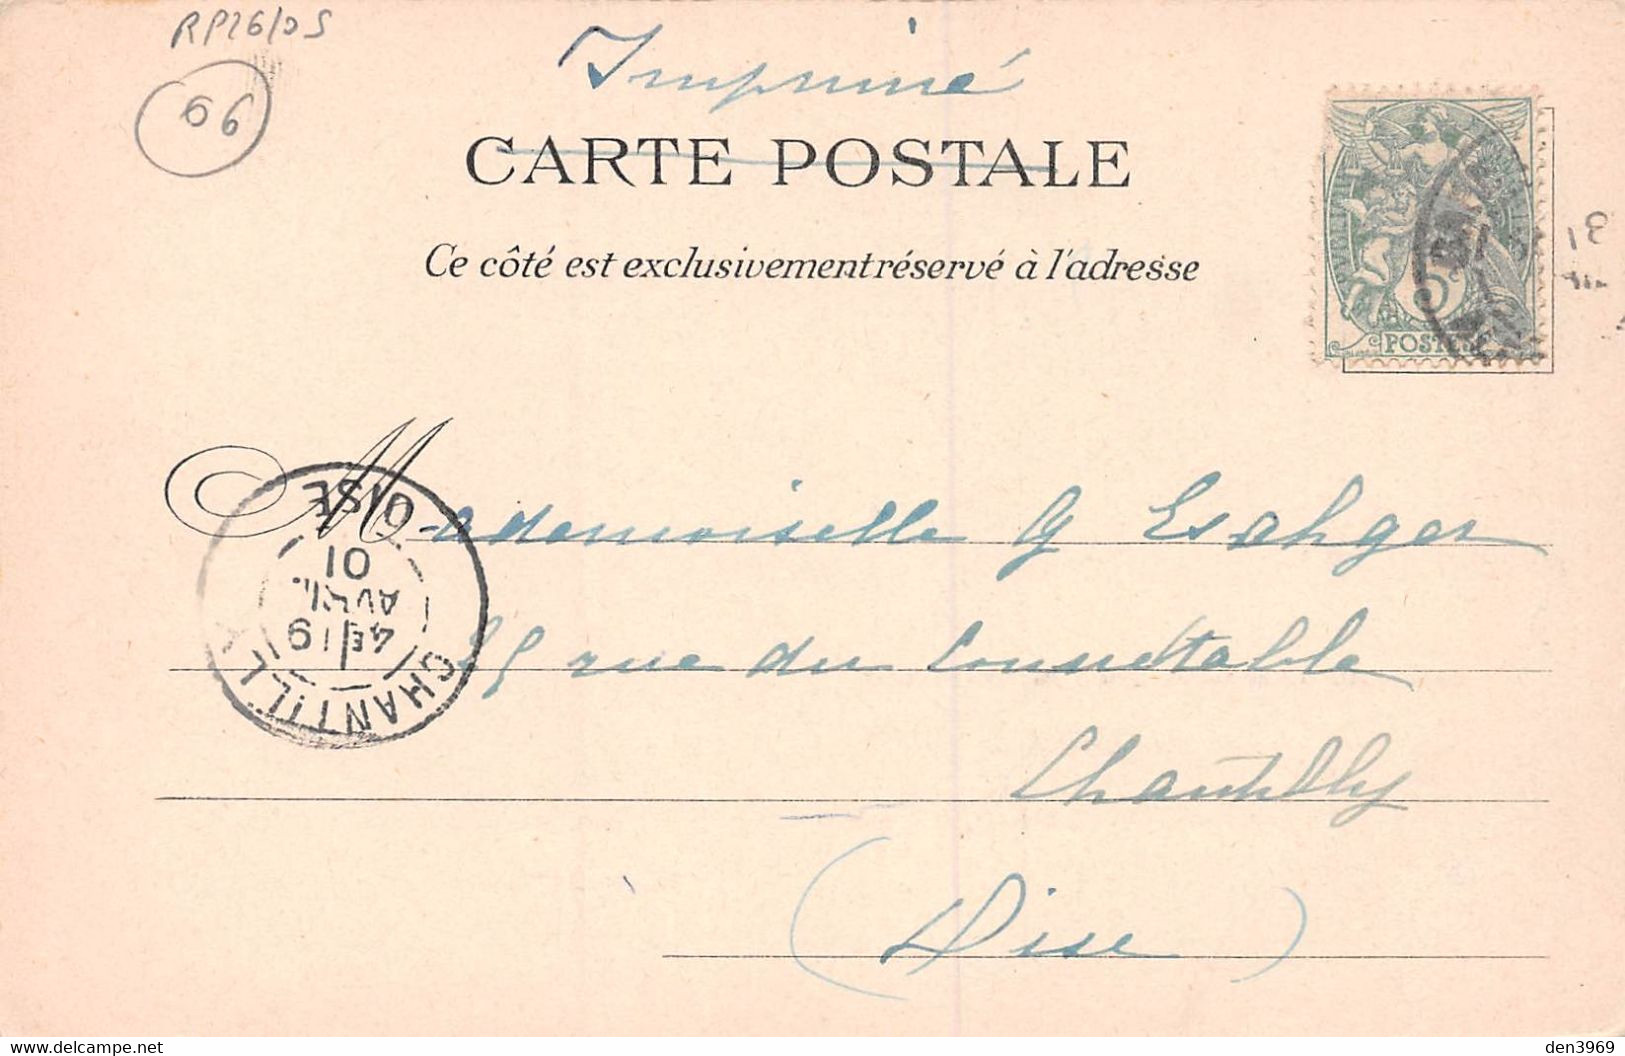 RP26/05
06
Imprimé
CARTE POSTALE
Ce côté est exclusivement réservé à l'adresse
5
POSTES
Mademoiselle G Esahger
25 rue du Connétable
Chantilly
(Oise)
CHANTILLY
4E 19
AVRIL
01
OISE
den3969